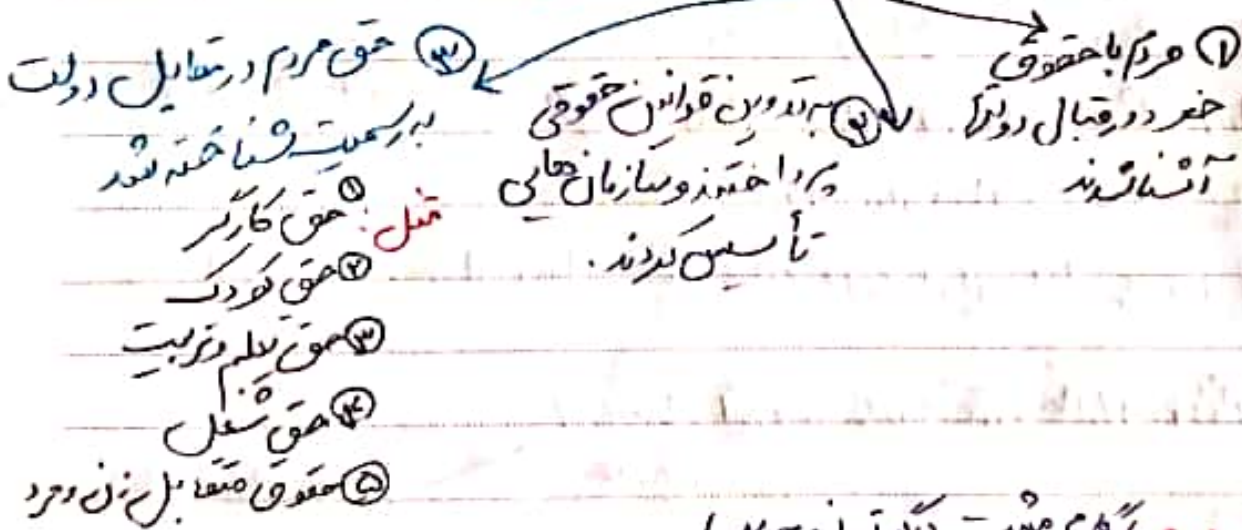 ① مردم با حقوق
خود در قبال دولتها
آشنا شدند
② به تدوین قوانین حقوقی
پرداختند و سازمان هایی
تأسیس کردند.
③ حق مردم در مقابل دولت
به رسمیت شناخته شد
مثل: ① حق کارگر
② حق کودک
③ حق تعلیم و تربیت
④ حق شغل
⑤ حقوق متقابل زن و مرد